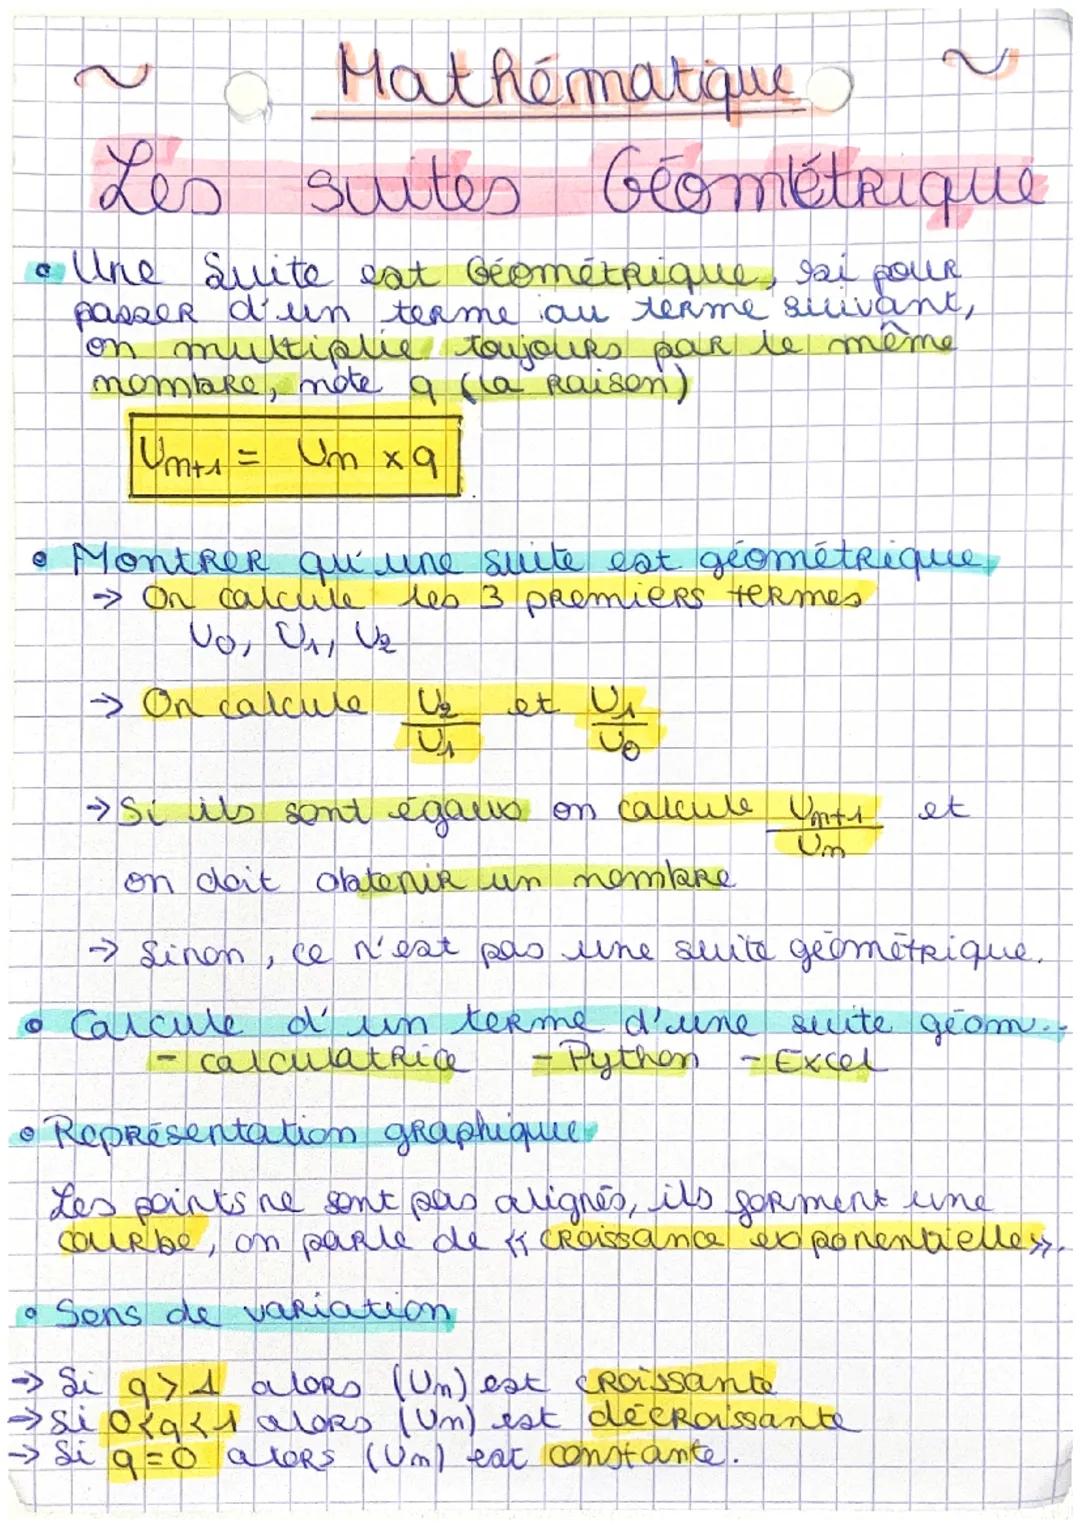 ~ Mathématique ~
Les suites Géométrique
• Une Suite est Géométrique, si pour
passer d'un terme au terme suivant,
on multiplie toujours par le même
nombre, note q (la raison)
Un+1 = Un x q
• Montrer qu'une suite est géométrique
→ On calcule les 3 premiers termes
U0, U1, U2
→ On calcule U2/U1 et U1/U0
→ Si ils sont égaux on calcule Un+1/Un et
on doit obtenir un nombre
→ Sinon, ce n'est pas une suite géométrique.
• Calcule d'un terme d'une suite géom..
- calculatrice - Python - Excel
• Représentation graphique
Les points ne sont pas alignés, ils forment une
courbe, on parle de « croissance exponentielle ».
• Sens de variation
→ Si q > 1 alors (Un) est croissante
→ Si 0<q<1 alors (Un) est décroissante
→ Si q=0 alors (Un) est constante.